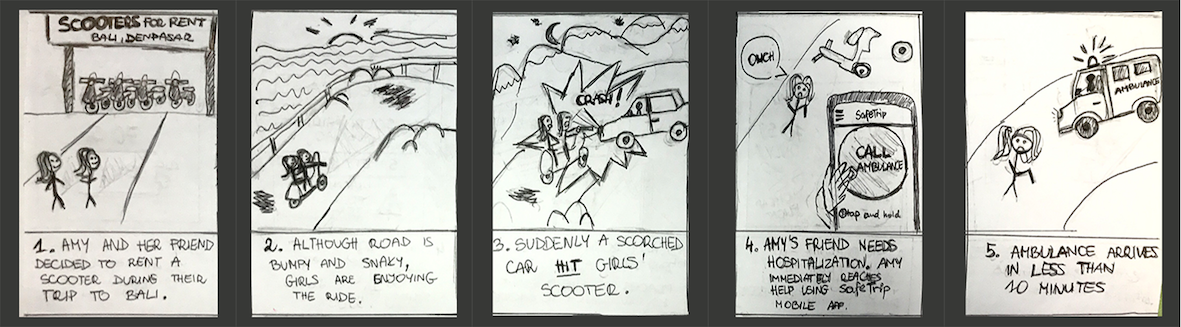 SCOOTERS FOR RENT
BALI, DENPASAR
1. AMY AND HER FRIEND
DECIDED TO RENT A
SCOOTER DURING THEIR
TRIP TO BALI.
2. ALTHOUGH ROAD IS
BUMPY AND SNAKY,
GIRLS ARE ENJOYING
THE RIDE.
CRASH!
3. SUDDENLY A SCORCHED
CAR HIT GIRLS'
SCOOTER.
OWCH
SafeTrip
CALL
AMBULANCE
tap and hold
4. AMY'S FRIEND NEEDS
HOSPITALIZATION, AMY
IMMEDIATELY REACHES
HELP USING SafeTrip
MOBILE APP.
AMBULANCE
5. AMBULANCE ARRIVES
IN LESS THAN
10 MINUTES